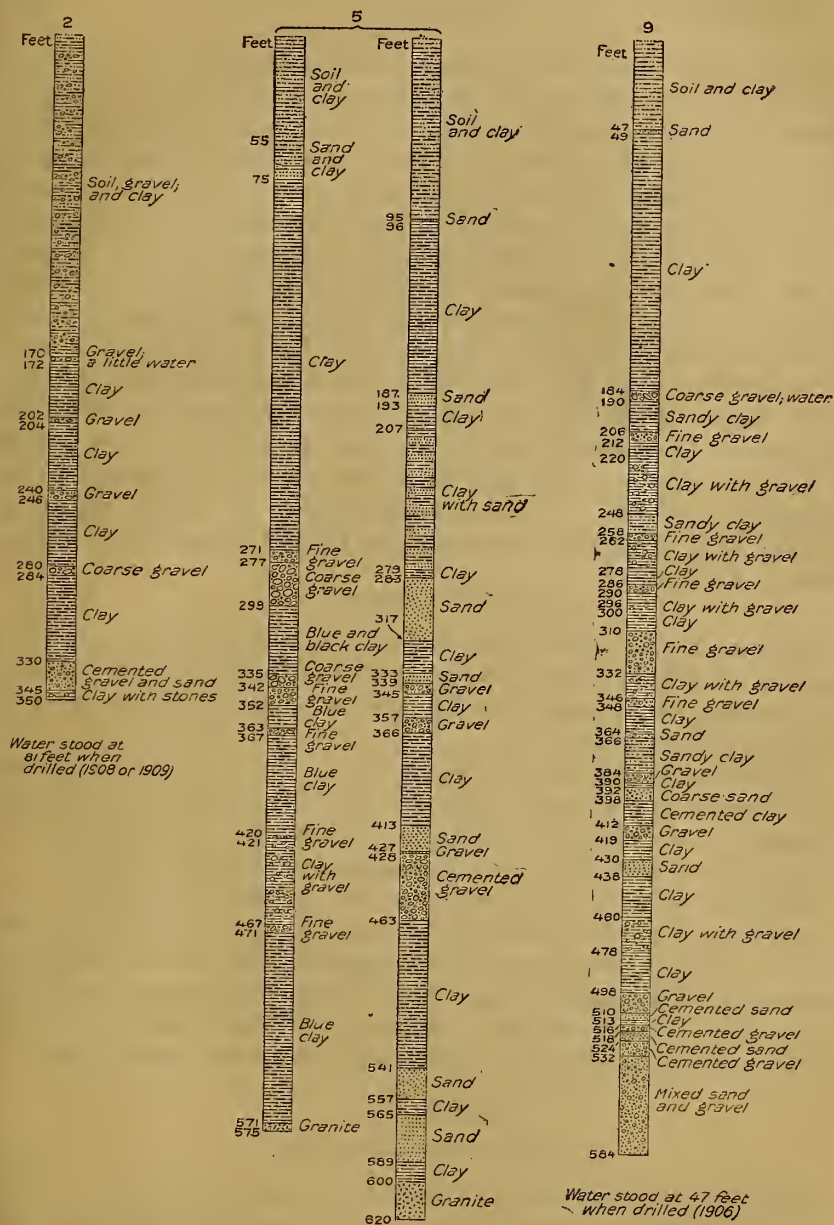 2
Feet
Soil, gravel,
and clay
170
172
Gravel;
a little water
Clay
202
204
Gravel
Clay
240
246
Gravel
Clay
280
284
Coarse gravel
Clay
330
Cemented
gravel and sand
345
350
Clay with stones
Water stood at
81 feet when
drilled (1908 or 1909)
5
Feet
Soil
and
clay
55
Sand
and
clay
75
Clay
271
277
Fine
gravel
Coarse
gravel
299
Blue and
black clay
335
Coarse
gravel
342
Fine
gravel
352
Blue
clay
363
367
Fine
gravel
Blue
clay
420
421
Fine
gravel
Clay
with
gravel
467
471
Fine
gravel
Blue
clay
571
575
Granite
Feet
Soil
and clay
95
96
Sand
Clay
187
193
Sand
Clay
207
Clay
with sand
279
283
Clay
Sand
317
Clay
333
Sand
339
Gravel
345
Clay
357
Gravel
366
Clay
413
Sand
427
Gravel
428
Cemented
gravel
463
Clay
541
Sand
557
Clay
565
Sand
589
Clay
600
Granite
620
9
Feet
Soil and clay
47
49
Sand
Clay
184
190
Coarse gravel; water
Sandy clay
206
212
Fine gravel
Clay
220
Clay with gravel
248
Sandy clay
258
262
Fine gravel
Clay with gravel
278
Clay
286
290
Fine gravel
296
300
Clay with gravel
Clay
310
Fine gravel
332
Clay with gravel
346
348
Fine gravel
Clay
364
366
Sand
Sandy clay
384
Gravel
390
Clay
392
398
Coarse sand
Cemented clay
412
Gravel
419
Clay
430
Sand
438
Clay
460
Clay with gravel
478
Clay
498
Gravel
510
Cemented sand
513
Clay
516
Cemented gravel
518
Cemented sand
524
Cemented gravel
532
Mixed sand
and gravel
584
Water stood at 47 feet
when drilled (1906)